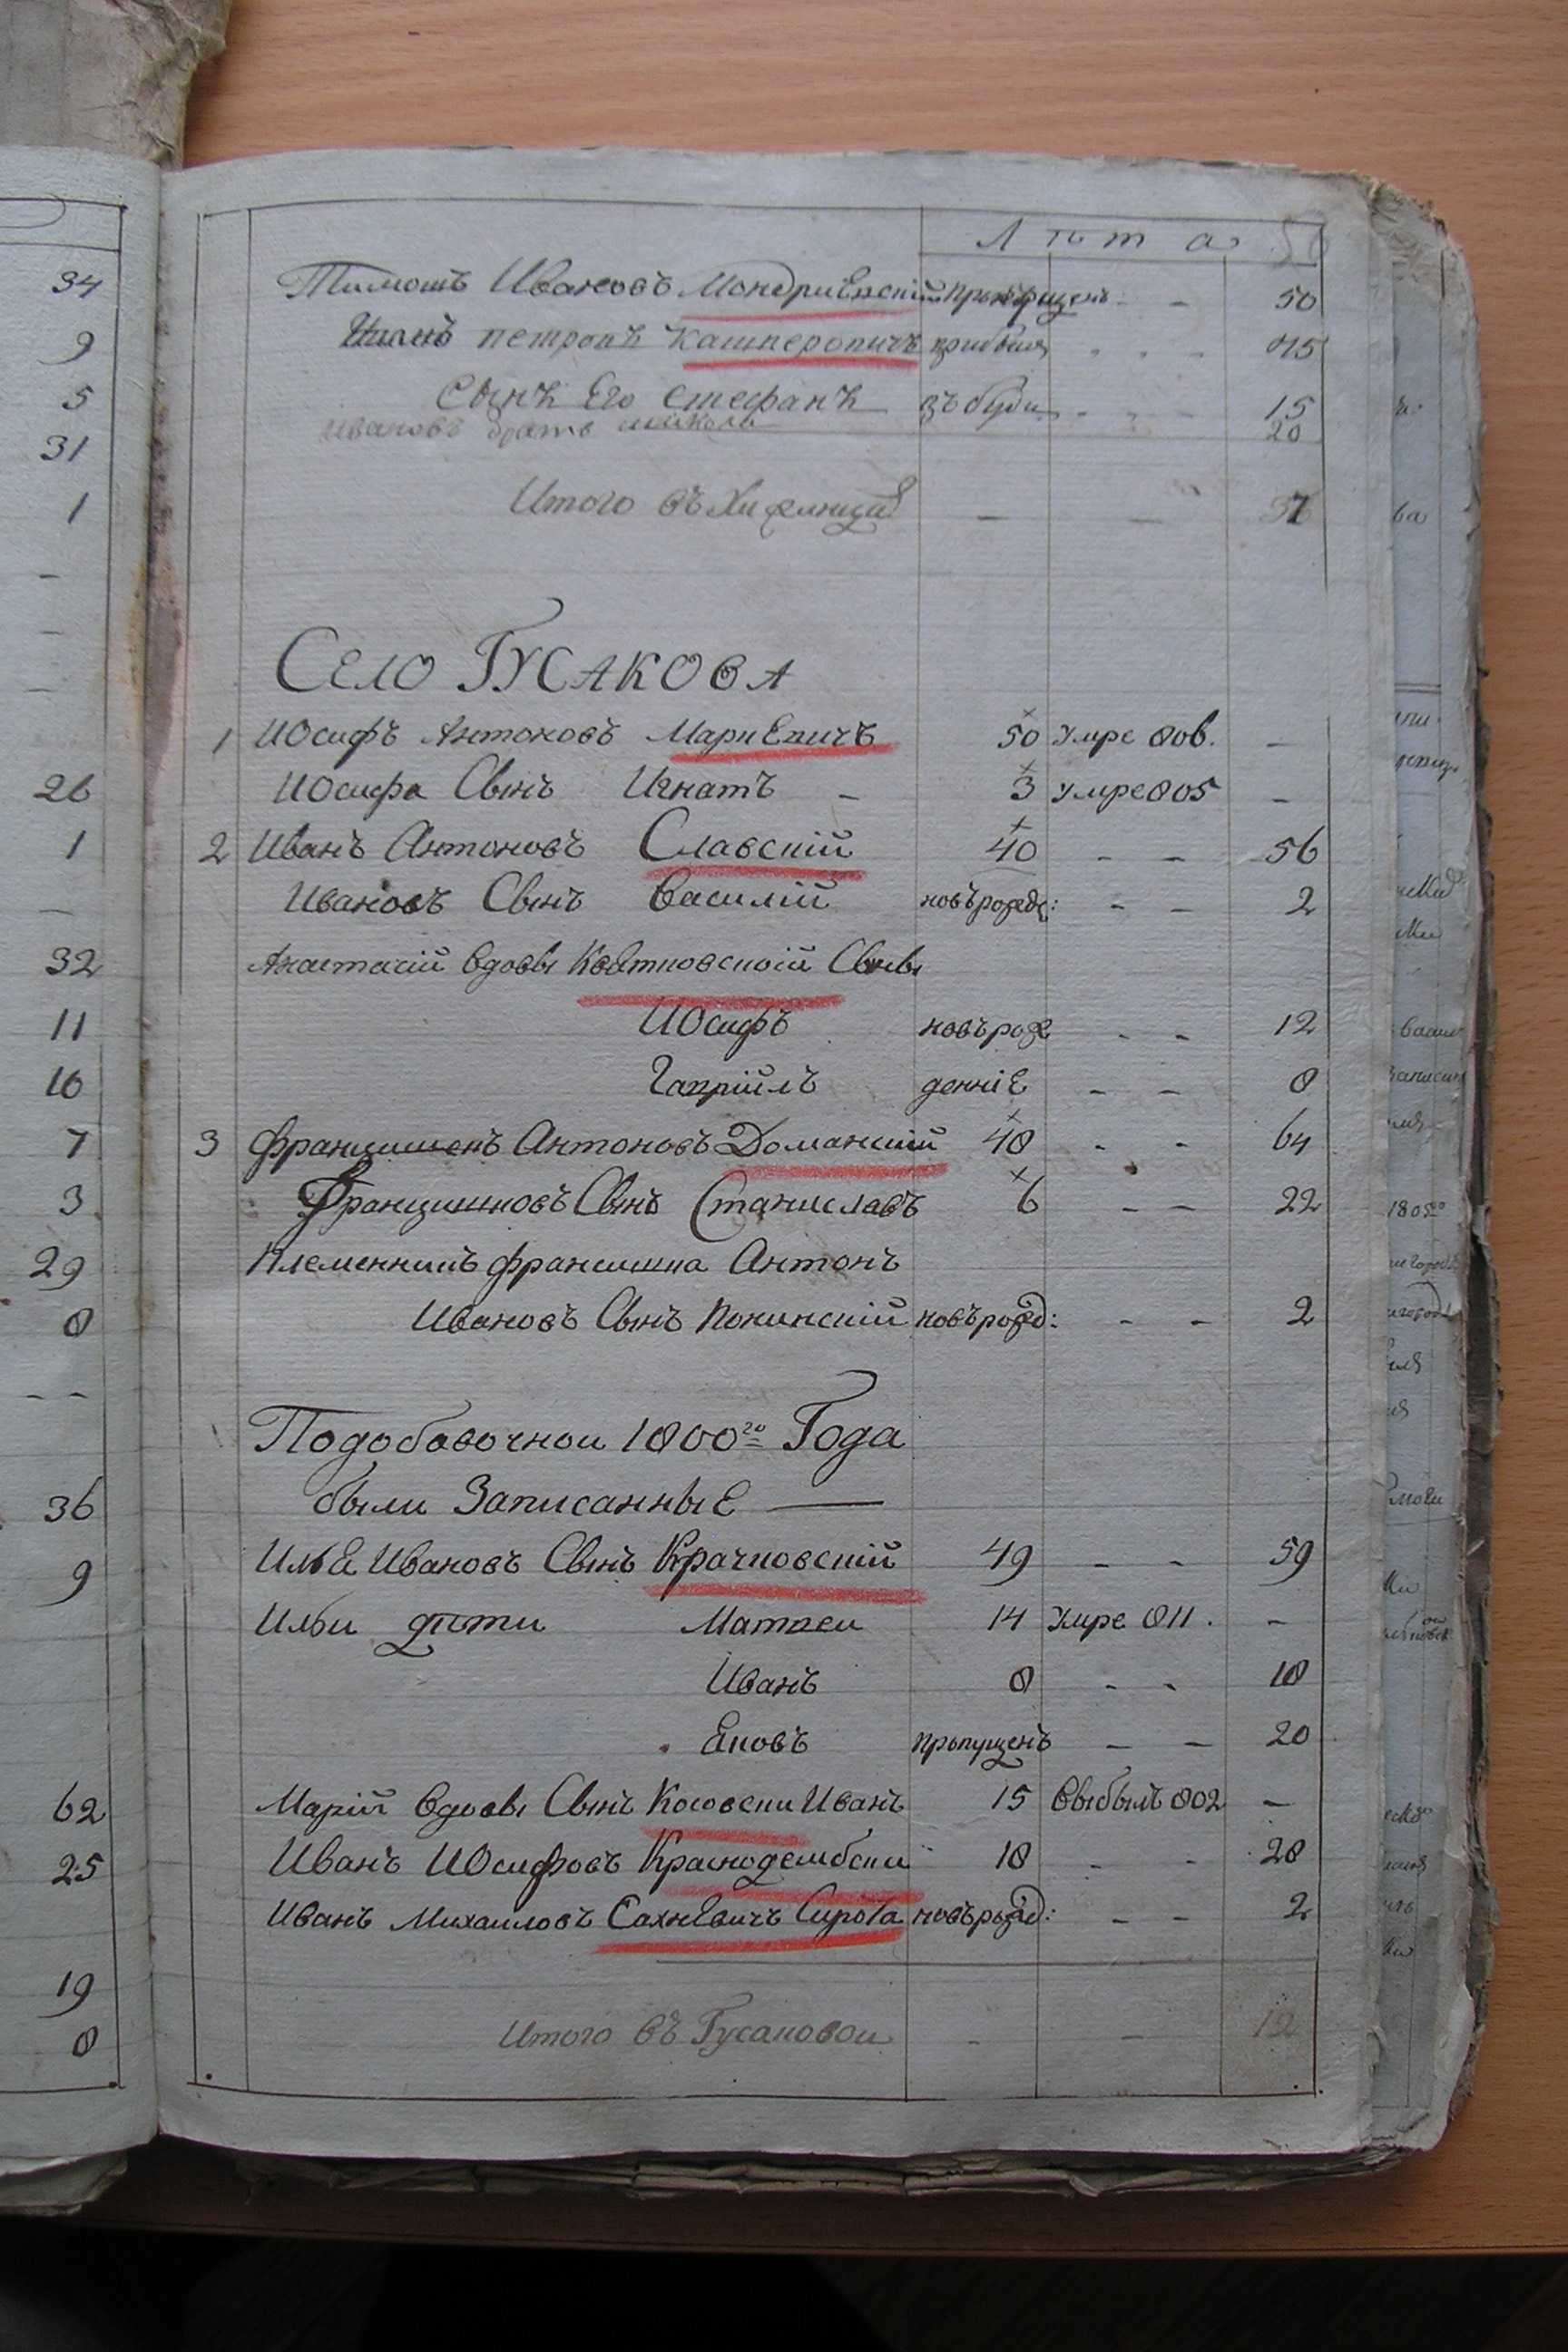 34
9
5
31
1
26
1
32
11
10
7
3
29
8
36
9
62
25
19
8
Лѣта
Тимошъ Ивановъ пропущенъ - 50
петровъ Кашперовичъ прибыл
Сынъ Его Стефанъ 15
Ивановъ братъ 20
Итого въ
Село Гусакова
1 Иосифъ Антоновъ 50 умре 806. —
Иосифа Сынъ Игнатъ - 3 умре 805 —
2 Иванъ Антоновъ Славскій 40 - - 56
Ивановъ Сынъ Василій новърожд: - - 2
Анастасій вдовы Квятковской Сыны
Иосифъ новърож - - 12
Гавріилъ денніе - - 8
3 Францишекъ Антоновъ Доманскій 48 - - 64
Францишковъ Сынъ Станиславъ 6 - - 22
Племенникъ франсишка Антонъ
Ивановъ Сынъ новърожд: - - 2
Подобавочной 1800го Года
были Записанные —
Илья Ивановъ Сынъ Крачковскій 49 - - 59
Ильи дѣти Матвеи 14 умре 811. —
Иванъ 8 - - 18
Яковъ пропущенъ - - 20
Марій вдовы Сынъ Косовски Иванъ 15 Выбылъ 802 —
Иванъ Иосифовъ Краснодембски 18 - - 28
Иванъ Михаиловъ Сахневичъ Сирота новърожд: - - 2
Итого въ Гусаковои - - 12